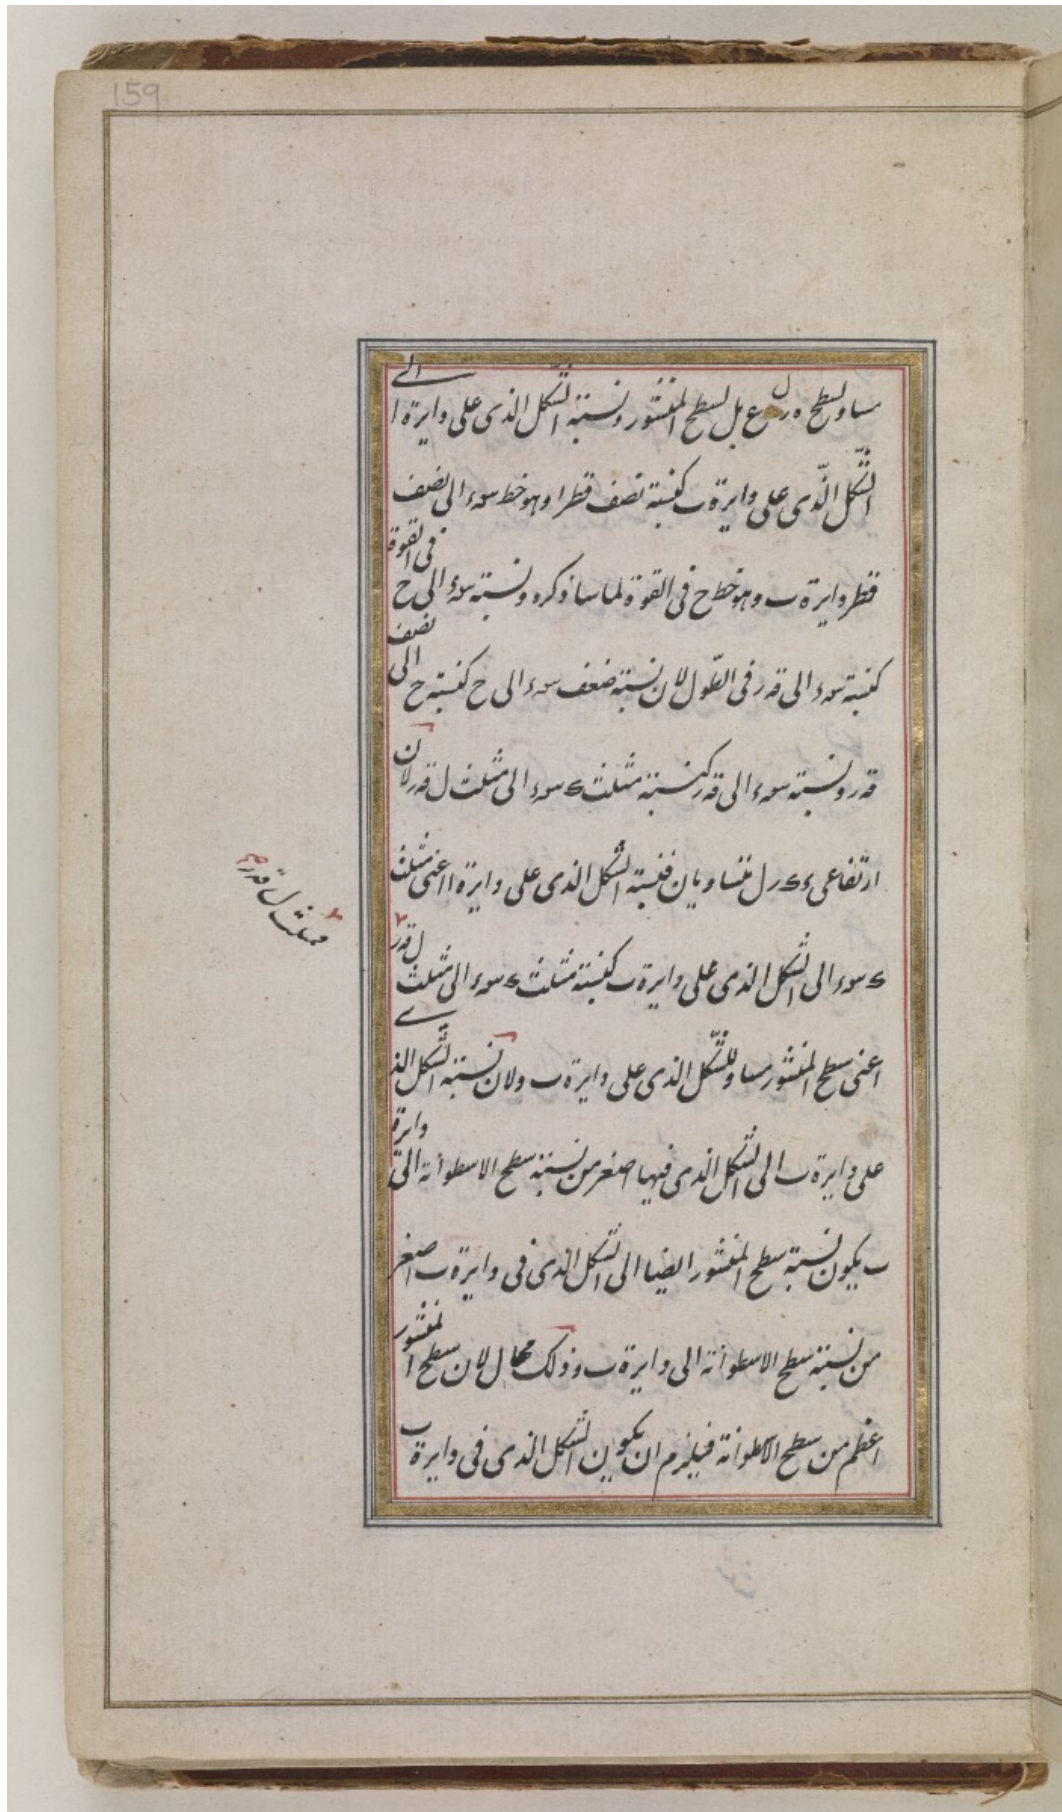 159
مساو لسطح ه ر ل ع بل لسطح المنشور ونسبة الشكل الذى على دايرة ا الى
الشكل الذى على دايرة ب كنسبة نصف قطر ا وهو خط سه ء الى نصف
قطر دايرة ب وهو خط ح فى القوة لما سا ذكره ونسبة سه ء الى ح فى القوة
كنسبة سه ء الى قه ر فى الطول لان نسبة ضعف سه ء الى ح كنسبة ح الى نصف
قه ر ونسبة سه ء الى قه ر كنسبة مثلث ك سه ء الى مثلث ل قه ر لان
ارتفاعى ء ك ر ل متساويان فنسبة الشكل الذى على دايرة ا اعنى مثلث
ك سه ء الى الشكل الذى على دايرة ب كنسبة مثلث ك سه ء الى مثلث ل قه ر
فمثلث ل قه ر
اعنى سطح المنشور مساو للشكل الذى على دايرة ب ولان نسبة الشكل الذى
على دايرة ب الى الشكل الذى فيها اصغر من نسبة سطح الاسطوانة الى دايرة
ب يكون نسبة سطح المنشور ايضا الى الشكل الذى فى دايرة ب اصغر
من نسبة سطح الاسطوانة الى دايرة ب وذلك محال لان سطح المنشور
اعظم من سطح الاسطوانة فيلزم ان يكون الشكل الذى فى دايرة ب